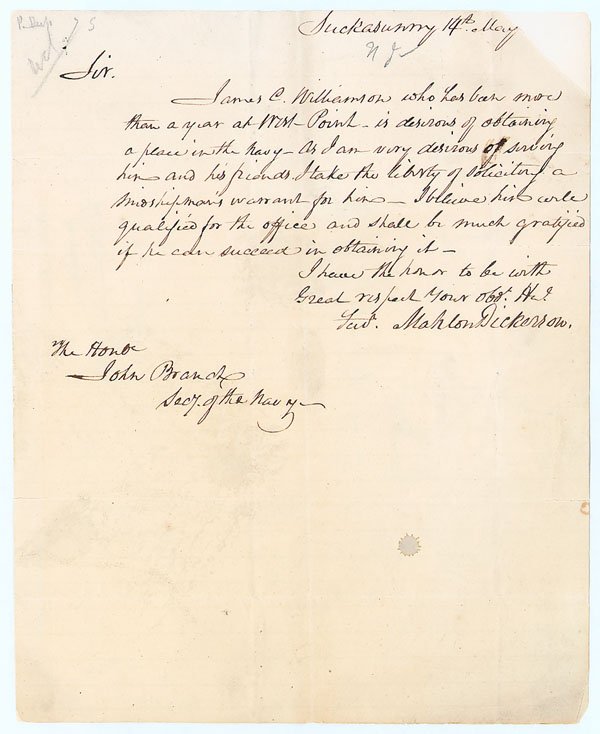 Suckasunny 14th. May
N J
Sir.
James C. Williamson who has been more
than a year at West-Point - is desirous of obtaining
a place in the Navy - As I am very desirous of serving
him and his friends I take the liberty of soliciting a
midshipmans warrant for him - I believe him well
qualified for the office and shall be much gratified
if he can succeed in obtaining it -
I have the honor to be with
Great respect Your Obt.
Servt. Mahlon Dickerson.
The Honbe
John Branch
Secy. of the Navy -